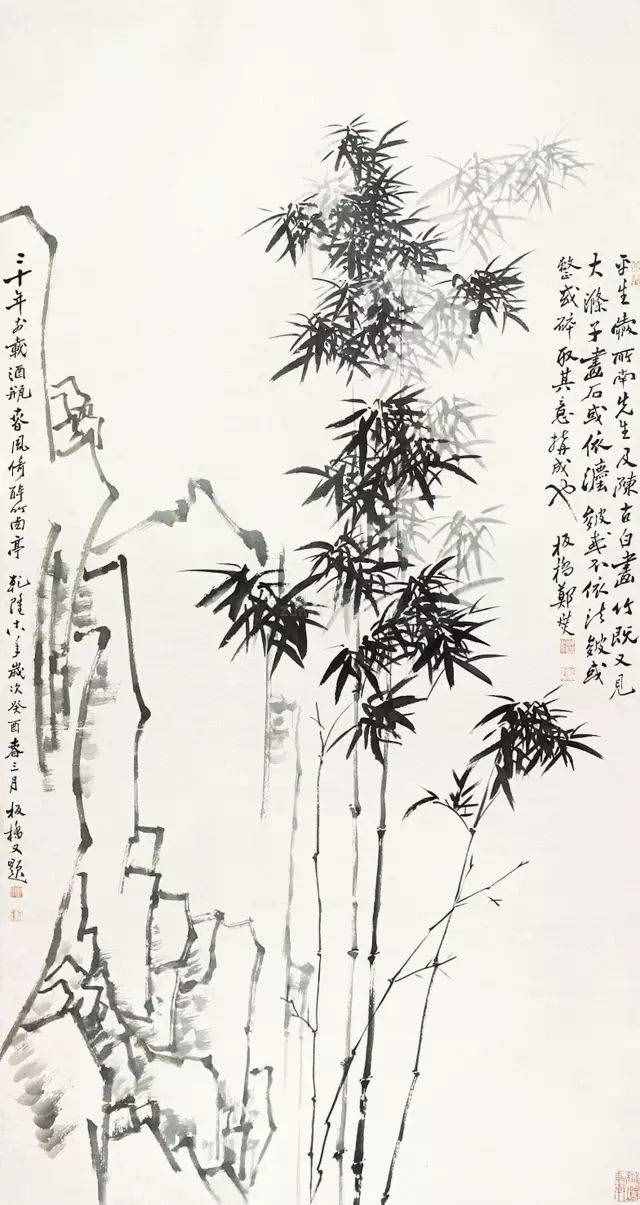 平生愛所南先生及陳古白畫竹既又見
大滌子畫石或依法皴或不依法皴或
整或碎取其意搆成也 板橋鄭燮
三十年前載酒瓶春風倚醉竹西亭 乾隆十八年歲次癸酉春三月 板橋又題